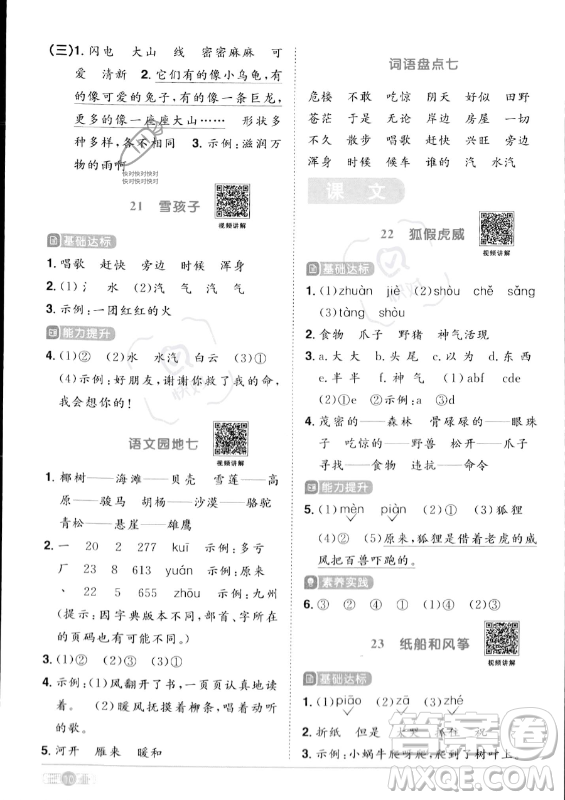 (三)1. 闪电 大山 线 密密麻麻 可
爱 清新 2. 它们有的像小乌龟,有
的像可爱的兔子,有的像一条巨龙,
更多的像一座座大山…… 形状多
种多样,各不相同 3. 示例:滋润万
物的雨啊
快对快对快对
快对快对快对
21 雪孩子
视频讲解
基础达标
1. 唱歌 赶快 旁边 时候 浑身
2. (1)氵 水 (2)汽 气 汽 气
3. 示例:一团红红的火
能力提升
1. (1)② (2)水 水汽 白云 (3)①
(4)示例:好朋友,谢谢你救了我的命,
我会想你的!
语文园地七
视频讲解
1. 椰树——海滩——贝壳 雪莲——高
原——骏马 胡杨——沙漠——骆驼
青松——悬崖——雄鹰
2. 一 20 2 277 kuī 示例:多亏
厂 23 8 613 yuán 示例:原来
丶 22 5 655 zhōu 示例:九州
(提示:因字典版本不同,部首、字所在
的页码也有可能不同。)
3. (1)② (2)② (3)① (4)①
4. 示例:(1)凤凰花开了,蝉在尽情地唱
着。 (2)暖风抚摸着柳条,倾听着鸟儿
的歌。
5. 河开 雁来 暖和
10
词语盘点七
危楼 不敢 吃惊 阴天 好似 田野
苍茫 于是 无论 岸边 房屋 一切
不久 散步 唱歌 赶快 兴旺 旁边
浑身 时候 候车 谁的 汽 水汽
课文
22 狐假虎威
视频讲解
基础达标
1. (1)zhuàn jiē (2)shòu chě sǎng
(3)tàng shòu
2. 食物 爪子 野猪 神气活现
3. a.大大 b.头尾 c.以为 d.东西
e.半半 f.神气 (1)af (2)bd abcde
(3)ef (4)示例:a d
4. 茂密的——森林 骨碌碌的——眼珠
子 吃惊的——野兽 松开——爪子
寻找——食物 违抗——命令
能力提升
1. (1)mèn piàn (2)④① (3)狐狸
(4)②③ (5)原来,狐狸是借着老虎的威
风把百兽吓跑的。
素养实践
③ ④ ② ①
23 纸船和风筝
视频讲解
基础达标
1. (1)piāo (2)zā (3)zhé
2. 折纸 但是
3. 示例:小蜗牛爬呀爬,爬到树叶上。
答案圈
MXQE.COM